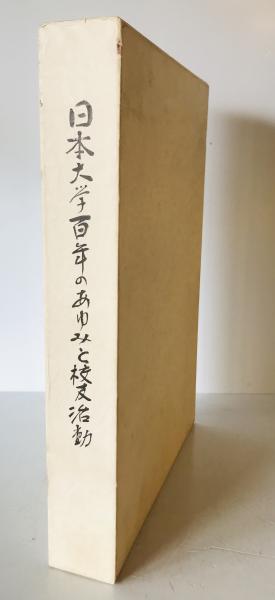 日本大学百年のあゆみと校友活動